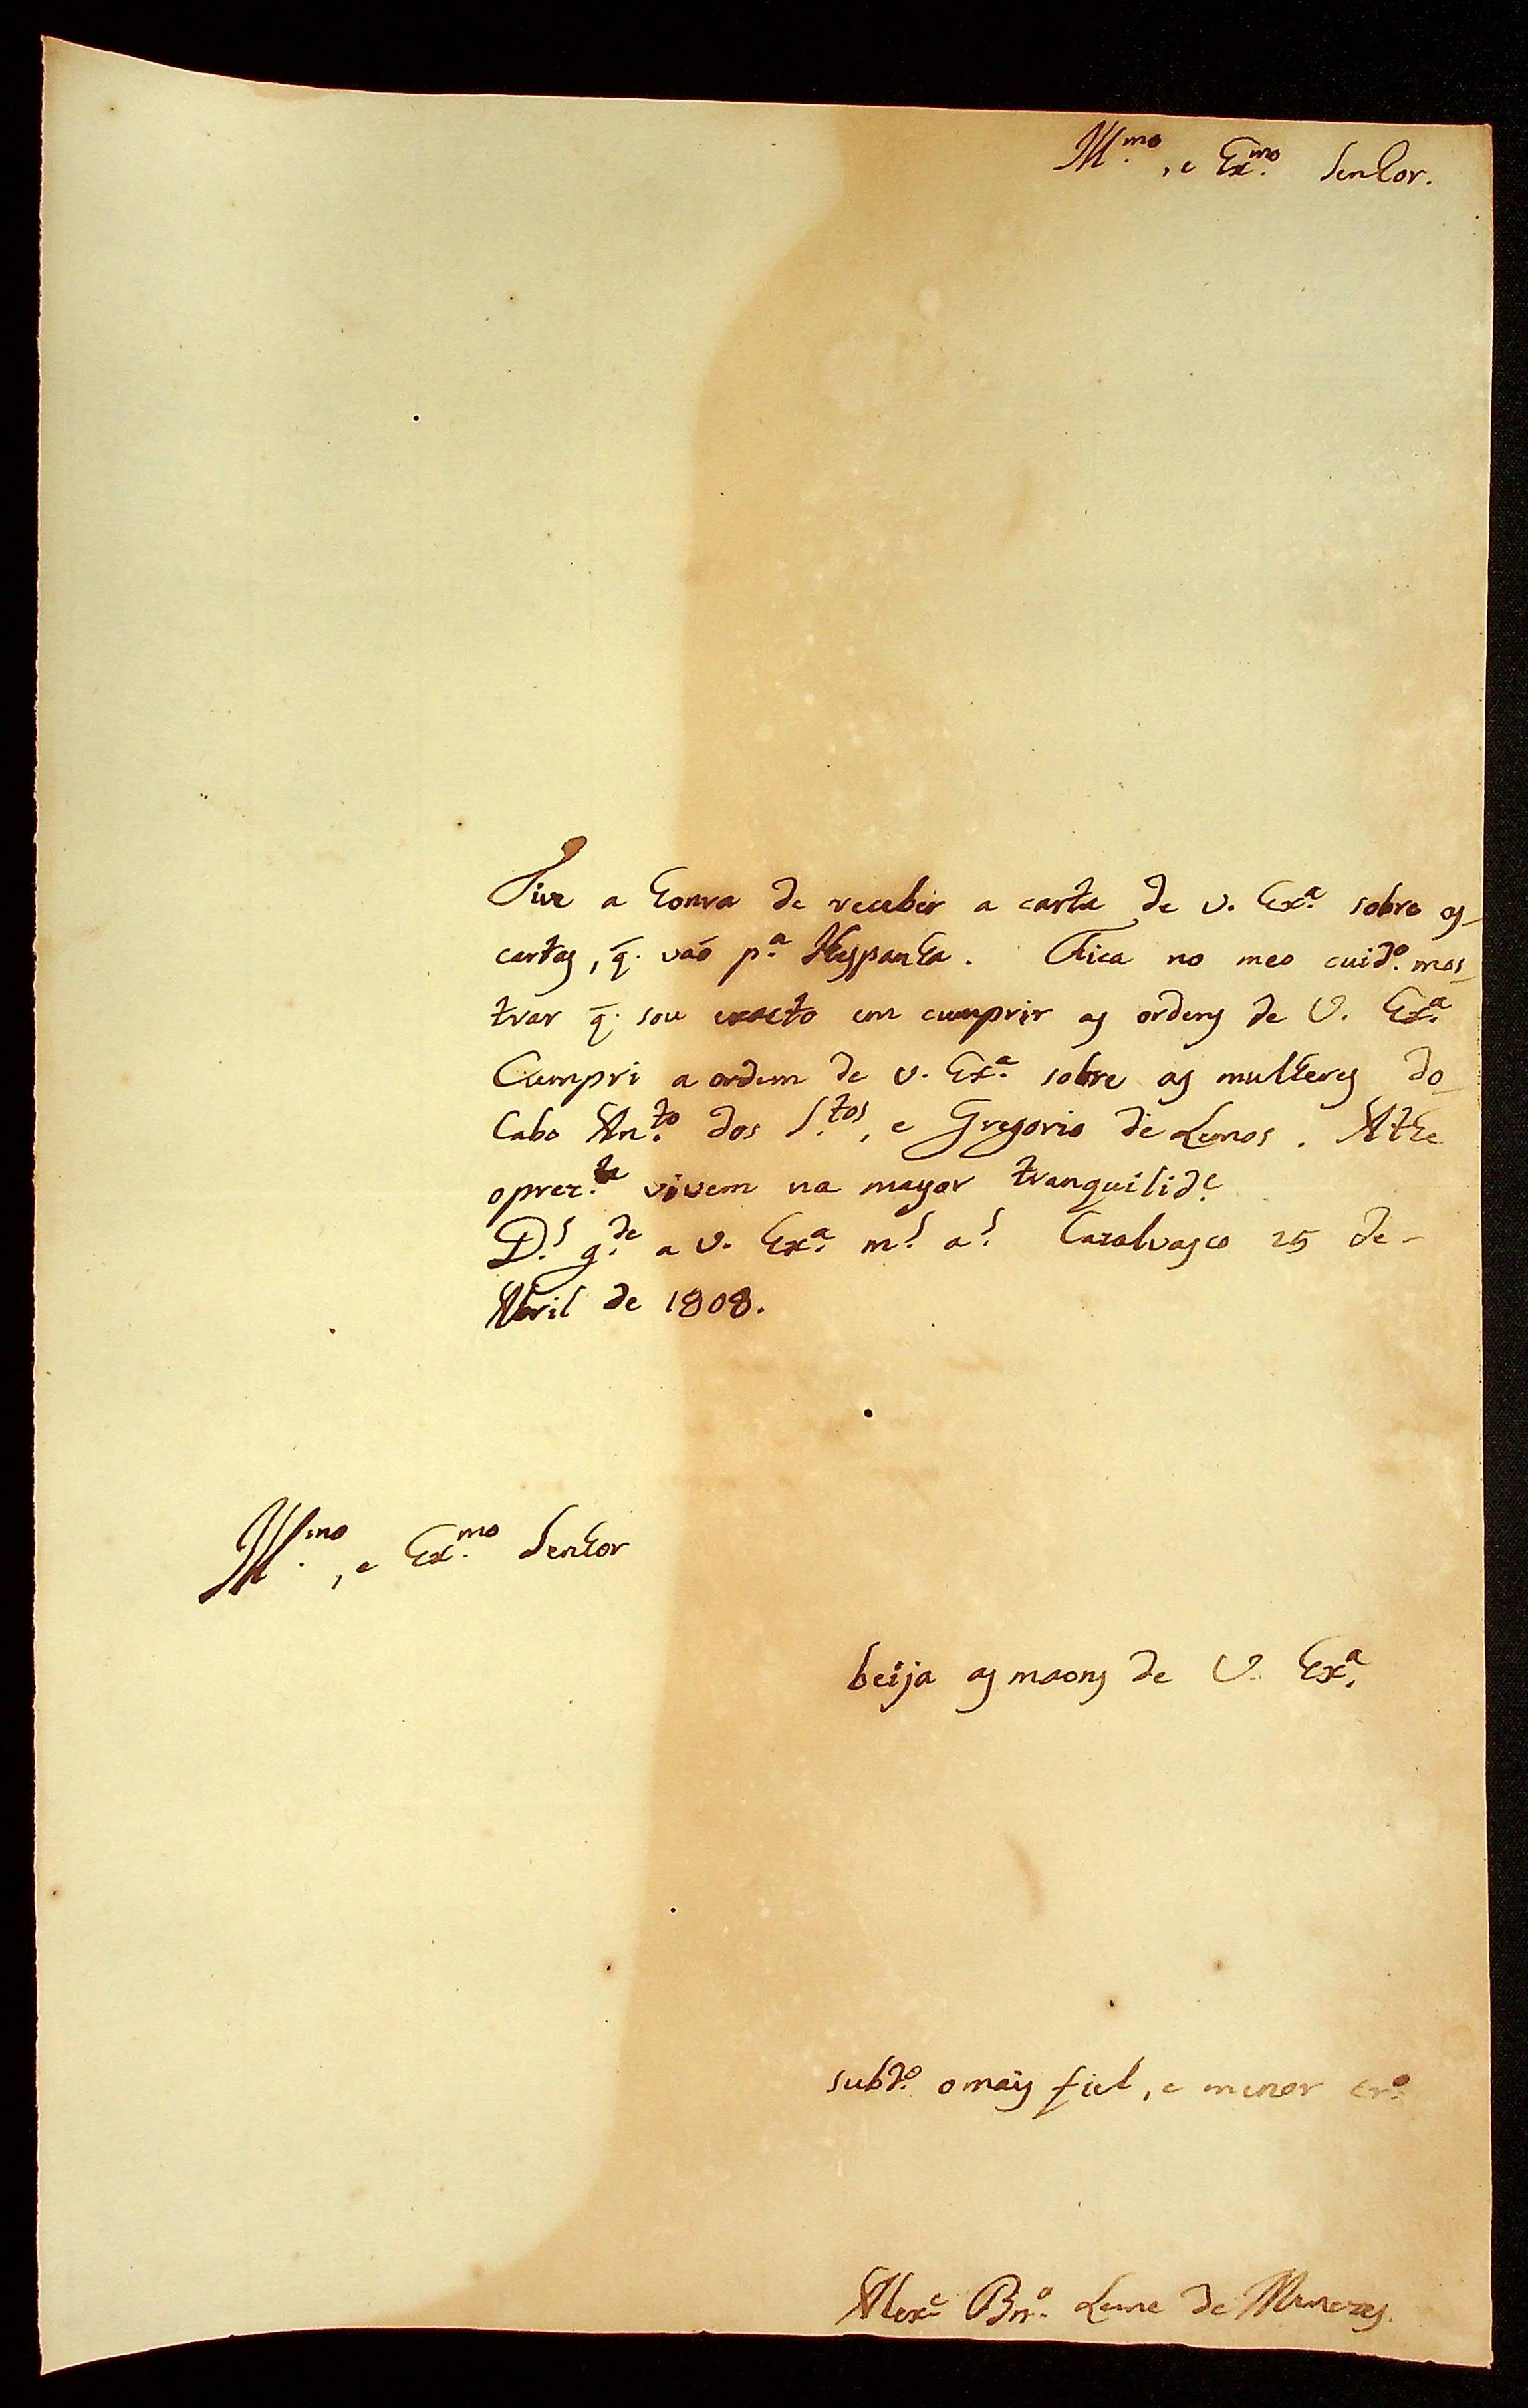 Ill.mo, e Ex.mo Senhor.
Tive a honra de receber a carta de V. Ex.a sobre as
cartas, q̃. vaõ p.a Hespanha. Fica no meo cuid.o mos-
trar q̃. sou exacto em cumprir as ordens de V. Ex.a
Cumpri a ordem de V. Ex.a sobre as mulheres do
Cabo Ant.o dos S.tos, e Gregorio de Lemos. Athe
oprez.te vivem na mayor tranquilid.e
D.s g.de a V. Ex.a m.s a.s Cazalvasco 25 de
Abril de 1808.
Ill.mo, e Ex.mo Senhor
beija as maons de V. Ex.a
subd.o omais fiel, e menor cr.o
Alex.e Bn.o Leme de Menezes.